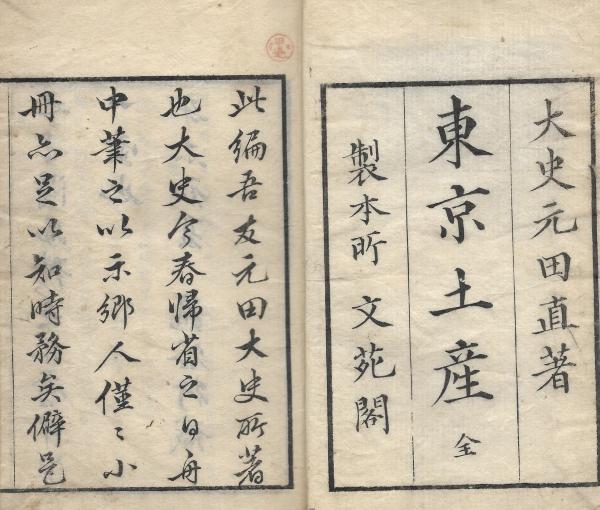 大史元田直著
東京土産 全
製本所 文苑閣
此編吾友元田大史所著
也大史今春帰省之日舟
中筆之以示郷人僅〻小
冊亦足以知時務矣僻邑